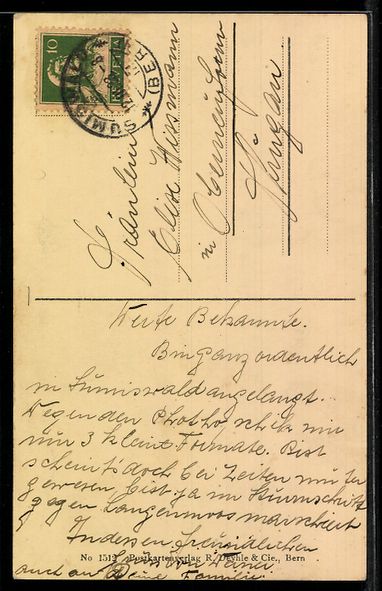 10
HELVETIA
SUMISWALD
(BERN)
Fräulein
Elise Wissmann
in Oberneunforn
Thurgau
Werte Bekannte.
Bin ganz ordentlich
in Sumiswald angelangt.
Wegen den Photho schik mir
nur 3 kleine Formate. Bist
scheint's doch bei Zeiten munter
gewesen bist ja im Sturmschritt
gegen Langenmoos marschiert
Indessen freundlichen
Gruss von
auch an Deine Familie
No 1512 Postkartenverlag R. Deyhle & Cie., Bern